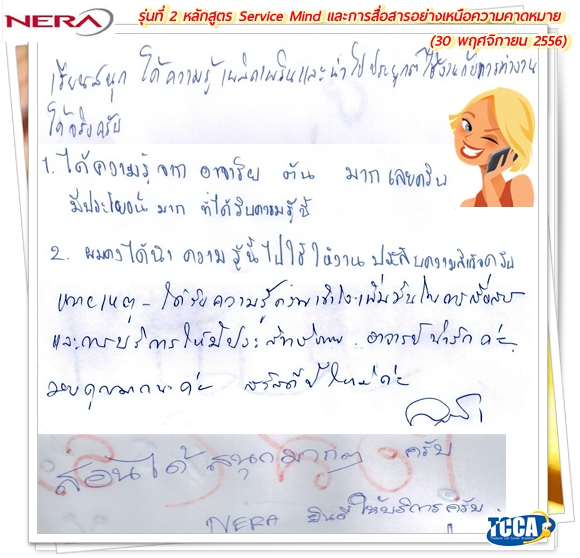 NERA
รุ่นที่ 2 หลักสูตร Service Mind และการสื่อสารอย่างเหนือความคาดหมาย
(30 พฤศจิกายน 2556)
เรียนสนุก ได้ความรู้ เพลิดเพลินและนำไปประยุกต์ใช้งานกับการทำงาน
ได้จริงครับ
1. ได้ความรู้จาก อาจารย์ ต้น มากเลยครับ
มีประโยชน์มาก ที่ได้รับความรู้นี้
2. ผมคงได้นำ ความรู้นี้ไปใช้ให้งาน ประสบความสำเร็จครับ
หมายเหตุ - ได้รับความรู้ความเข้าใจเพิ่มขึ้นในการสื่อสาร
และการบริการให้มีประสิทธิภาพ. อาจารย์น่ารักค่ะ
ขอบคุณมากนะค่ะ สวัสดีปีใหม่ค่ะ
สอนได้ สนุกมากๆ ครับ
NERA ยินดีให้บริการครับ
TCCA